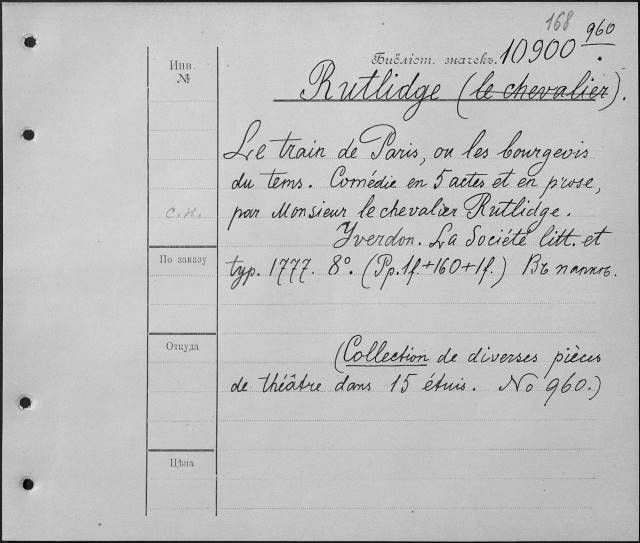 168
Библіот. значекъ. 10900 960
Инв. №
Rutlidge (le chevalier).
Le train de Paris, ou les bourgeois
du tems. Comédie en 5 actes et en prose,
par Monsieur le chevalier Rutlidge.
С.Н.
Yverdon. La Société litt. et
По заказу
typ. 1777. 8º. (Pp. 1f.+160+1f.) Въ папкѣ.
Откуда
(Collection de diverses pièces
de théâtre dans 15 étuis. No 960.)
Цѣна